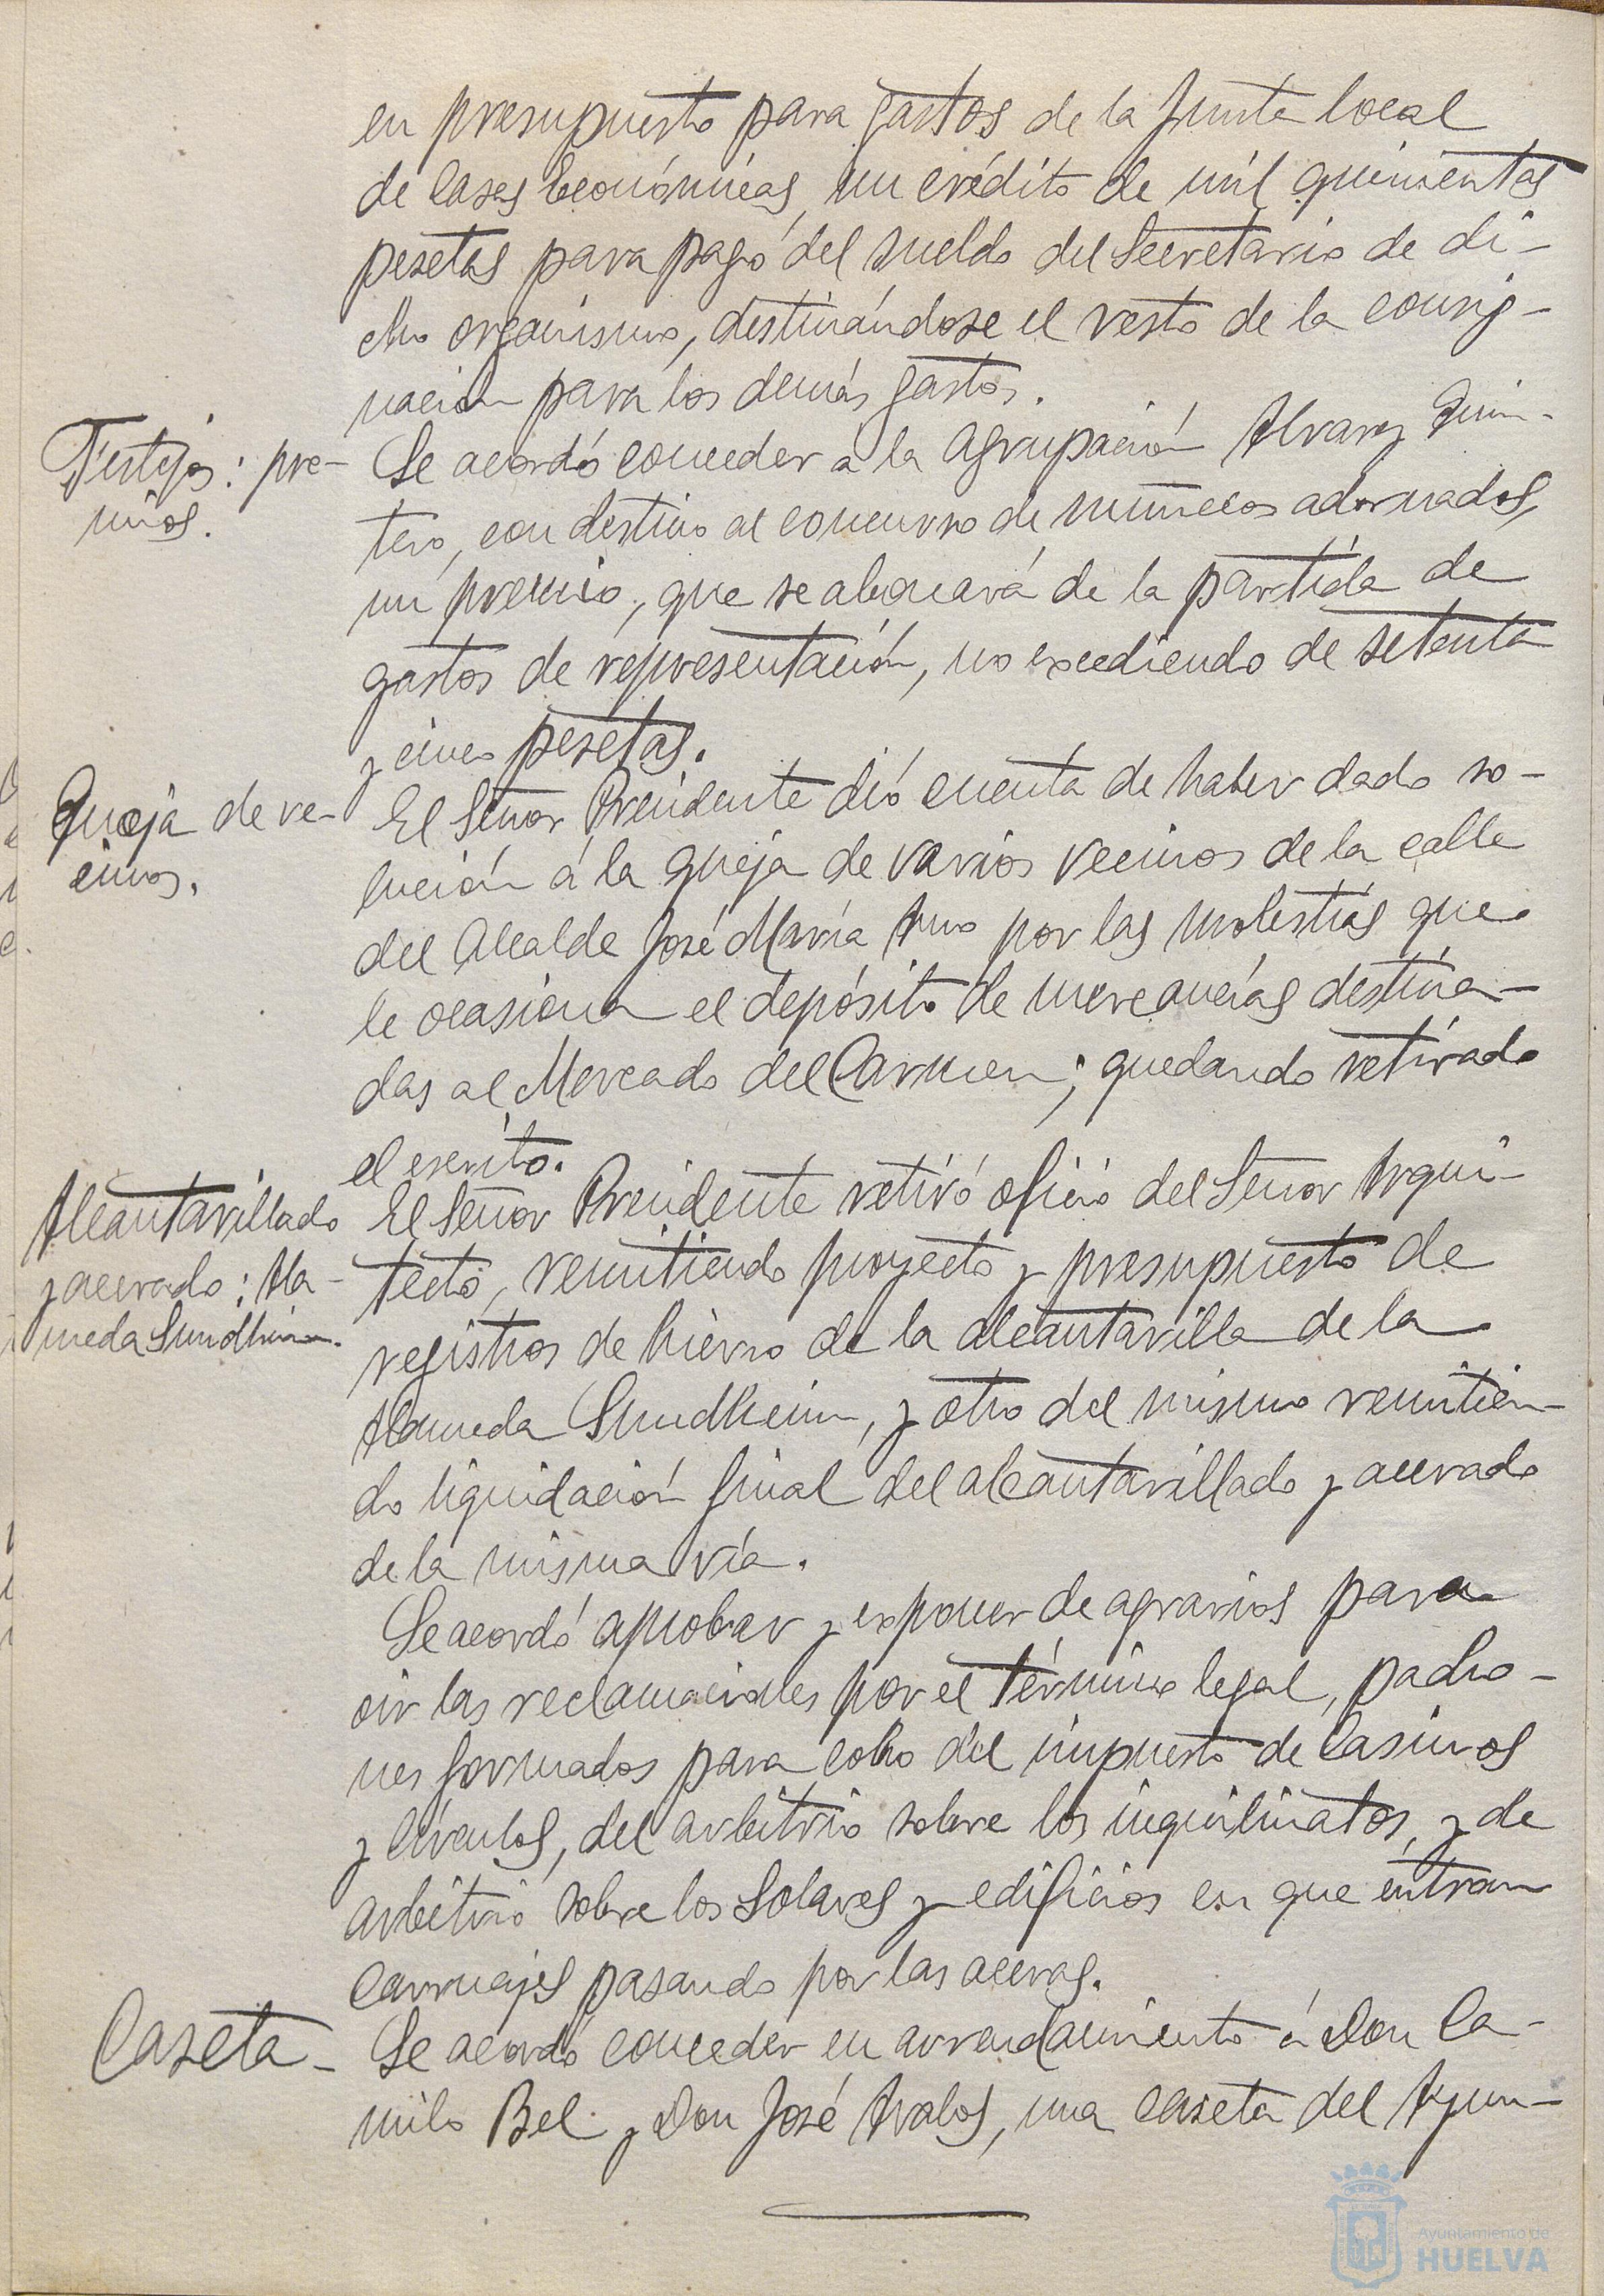 en presupuesto para gastos de la Junta local
de Casas Económicas, un crédito de mil quinientas
pesetas para pago del sueldo del Secretario de di-
cho organismo, destinándose el resto de la consig-
nación para los demás gastos.
Festejos: pre-
mios.
Se acordó conceder á la Agrupación Alvarez Quin-
tero, con destino al concurso de muñecos adornados,
un premio, que se abonará de la partida de
gastos de representación, no excediendo de setenta
y cinco pesetas.
Queja de ve-
cinos.
El Señor Presidente dió cuenta de haber dado so-
lución á la queja de varios vecinos de la calle
del Alcalde José María Amo por las molestias que
le ocasiona el depósito de mercancías destina-
das al Mercado del Carmen; quedando retirado
el escrito.
Alcantarillado
y acerado: Ala-
meda Sundheim.
El Señor Presidente retiró oficio del Señor Arqui-
tecto, remitiendo proyecto y presupuesto de
registros de hierro de la alcantarilla de la
Alameda Sundheim, y otro del mismo remitien-
do liquidación final del alcantarillado y acerado
de la misma vía.
Se acordó aprobar y exponer de agravios para
oir las reclamaciones por el término legal, padro-
nes formados para cobro del impuesto de Casinos
y Círculos, del arbitrio sobre los inquilinatos, y de
arbitrio sobre los Solares y edificios en que entran
carruajes pasando por las aceras.
Caseta-
Se acordó conceder en arrendamiento á Don Ca-
milo Bel y Don José Avalos, una caseta del Ayun-
Ayuntamiento de
HUELVA